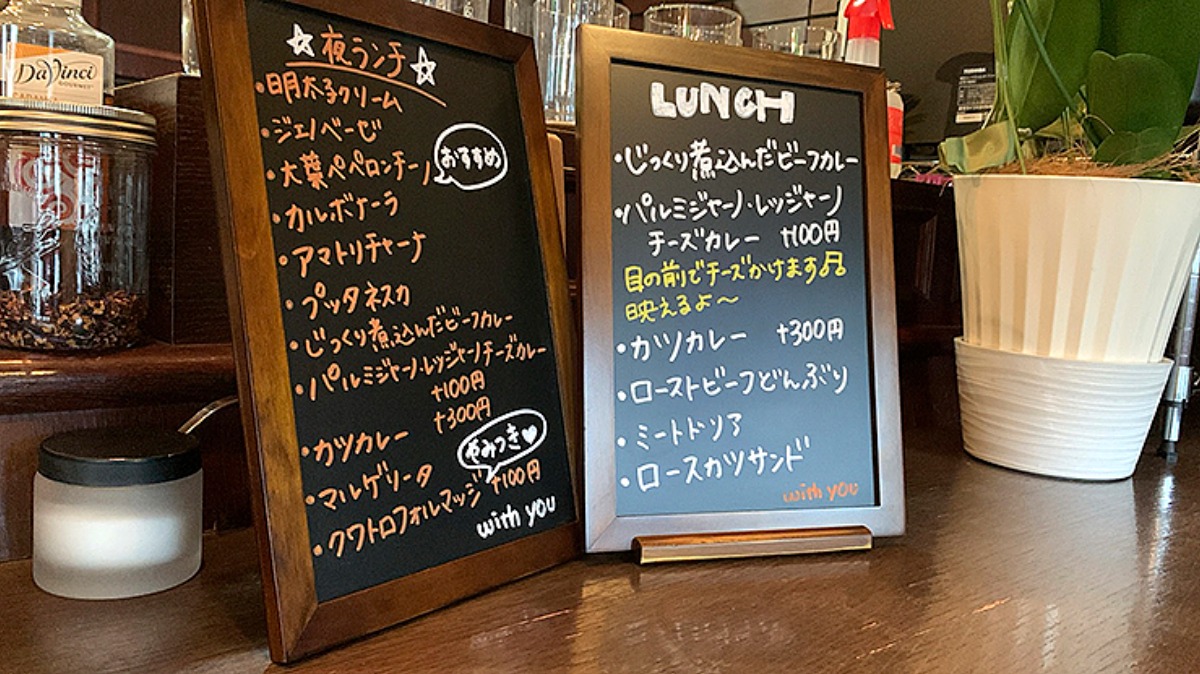 DaVinci
GOURMET
☆夜ランチ☆
・明太子クリーム
・ジェノベーゼ
・大葉ペペロンチーノ
おすすめ
・カルボナーラ
・アマトリチャーナ
・プッタネスカ
・じっくり煮込んだビーフカレー
・パルミジャーノ・レッジャーノチーズカレー
+100円
・カツカレー +300円
・マルゲリータ
やみつき♥
・クワトロフォルマッジ +100円
with you
LUNCH
・じっくり煮込んだビーフカレー
・パルミジャーノ・レッジャーノ
チーズカレー +100円
目の前でチーズかけます♫
映えるよ〜
・カツカレー +300円
・ローストビーフどんぶり
・ミートドリア
・ロースカツサンド
with you